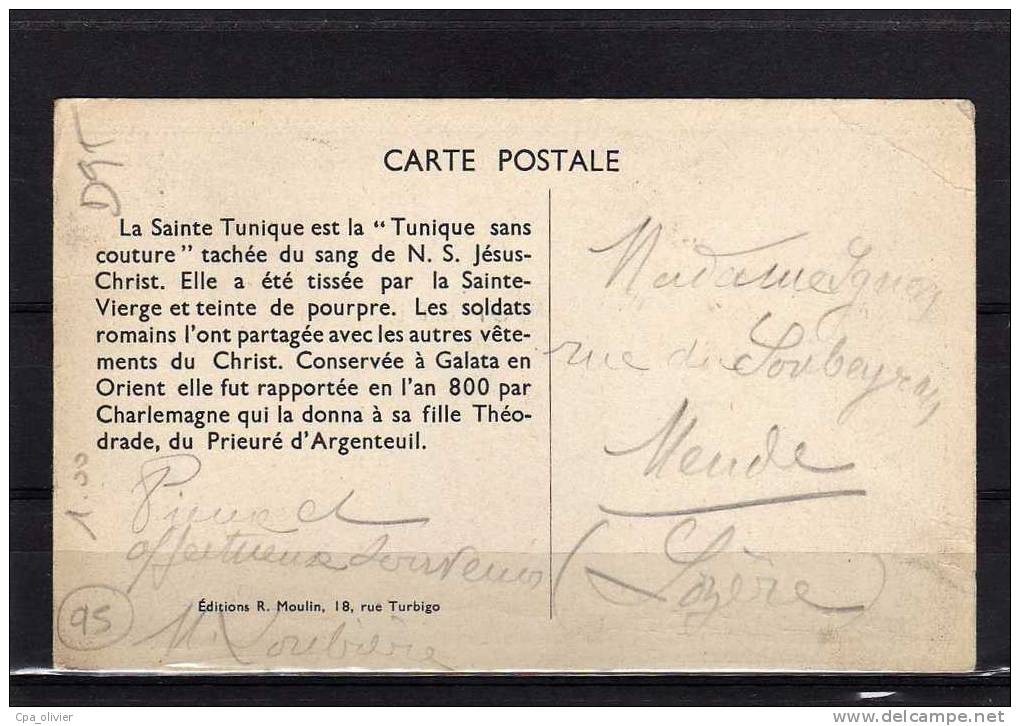 D95
CARTE POSTALE
La Sainte Tunique est la “ Tunique sans
couture ” tachée du sang de N. S. Jésus-
Christ. Elle a été tissée par la Sainte-
Vierge et teinte de pourpre. Les soldats
romains l'ont partagée avec les autres vête-
ments du Christ. Conservée à Galata en
Orient elle fut rapportée en l'an 800 par
Charlemagne qui la donna à sa fille Théo-
drade, du Prieuré d'Argenteuil.
1.00
affectueux souvenirs
Éditions R. Moulin, 18, rue Turbigo
95
M. Loubière
Madame
rue du Soubeyran
Mende
(Lozère)
Cpa_olivier
www.delcampe.net